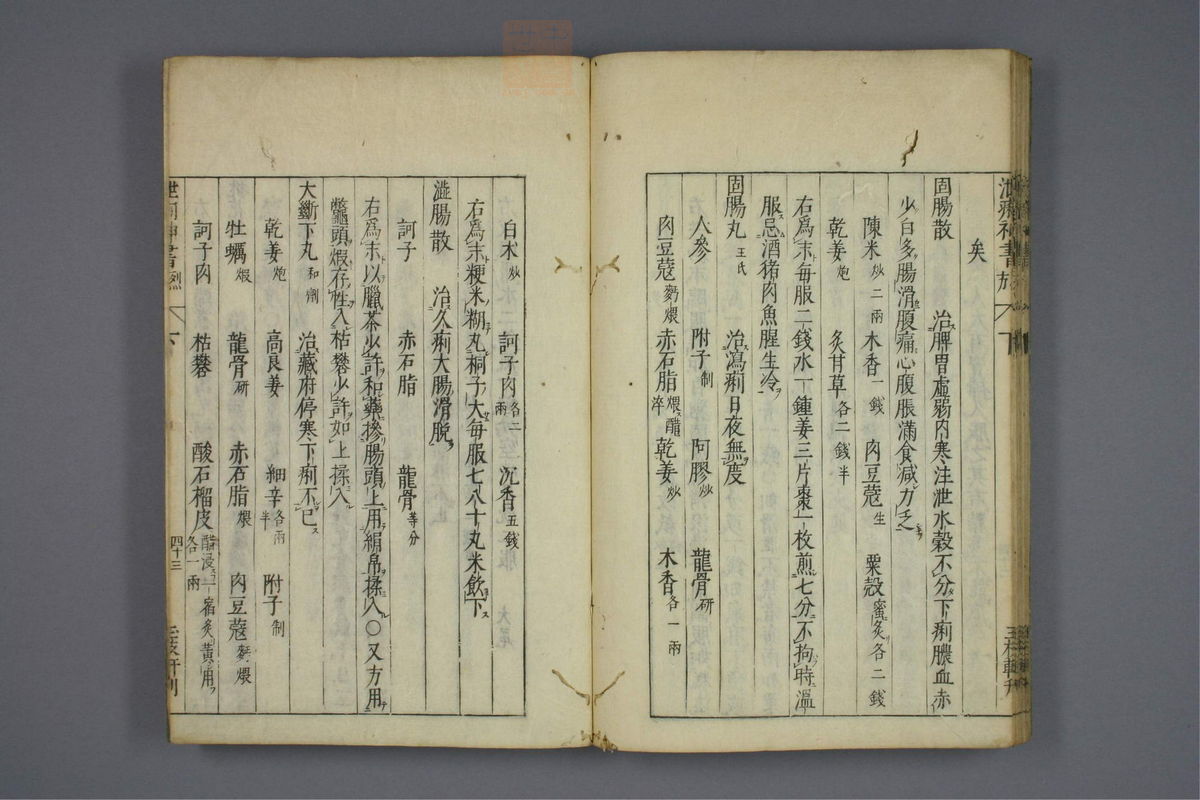 矣
固腸散 治脾胃虛弱内寒注泄水穀不分下痢膿血赤
少白多腸滑腹痛心腹脹滿食減力乏
陳米炒二兩 木香一錢 肉豆蔻生 粟殼蜜炙各二錢
乾姜炮 炙甘草各二錢半
右為末每服二錢水一鍾姜三片棗一枚煎七分不拘時溫
服忌酒猪肉魚腥生冷
固腸丸王氏 治瀉痢日夜無度
人參 附子制 阿膠炒 龍骨研
肉豆蔻麪煨 赤石脂煨醋淬 乾姜炒 木香各一兩
白朮炒 訶子肉各二兩 沉香五錢
右爲末粳米糊丸桐子大每服七八十丸米飲下
澁腸散 治久痢大腸滑脫
訶子 赤石脂 龍骨等分
右爲末以臘茶少許和藥摻腸頭上用絹帛揉入〇又方用
鱉頭煅存性入枯礬少許如上揉入
大斷下丸和劑 治藏府停寒下痢不已
乾姜炮 高良姜 細辛各兩半 附子制
牡蠣煆 龍骨研 赤石脂煨 肉豆蔻麪煨
訶子肉 枯礬 酸石榴皮醋浸一宿炙黃用各一兩
四十三